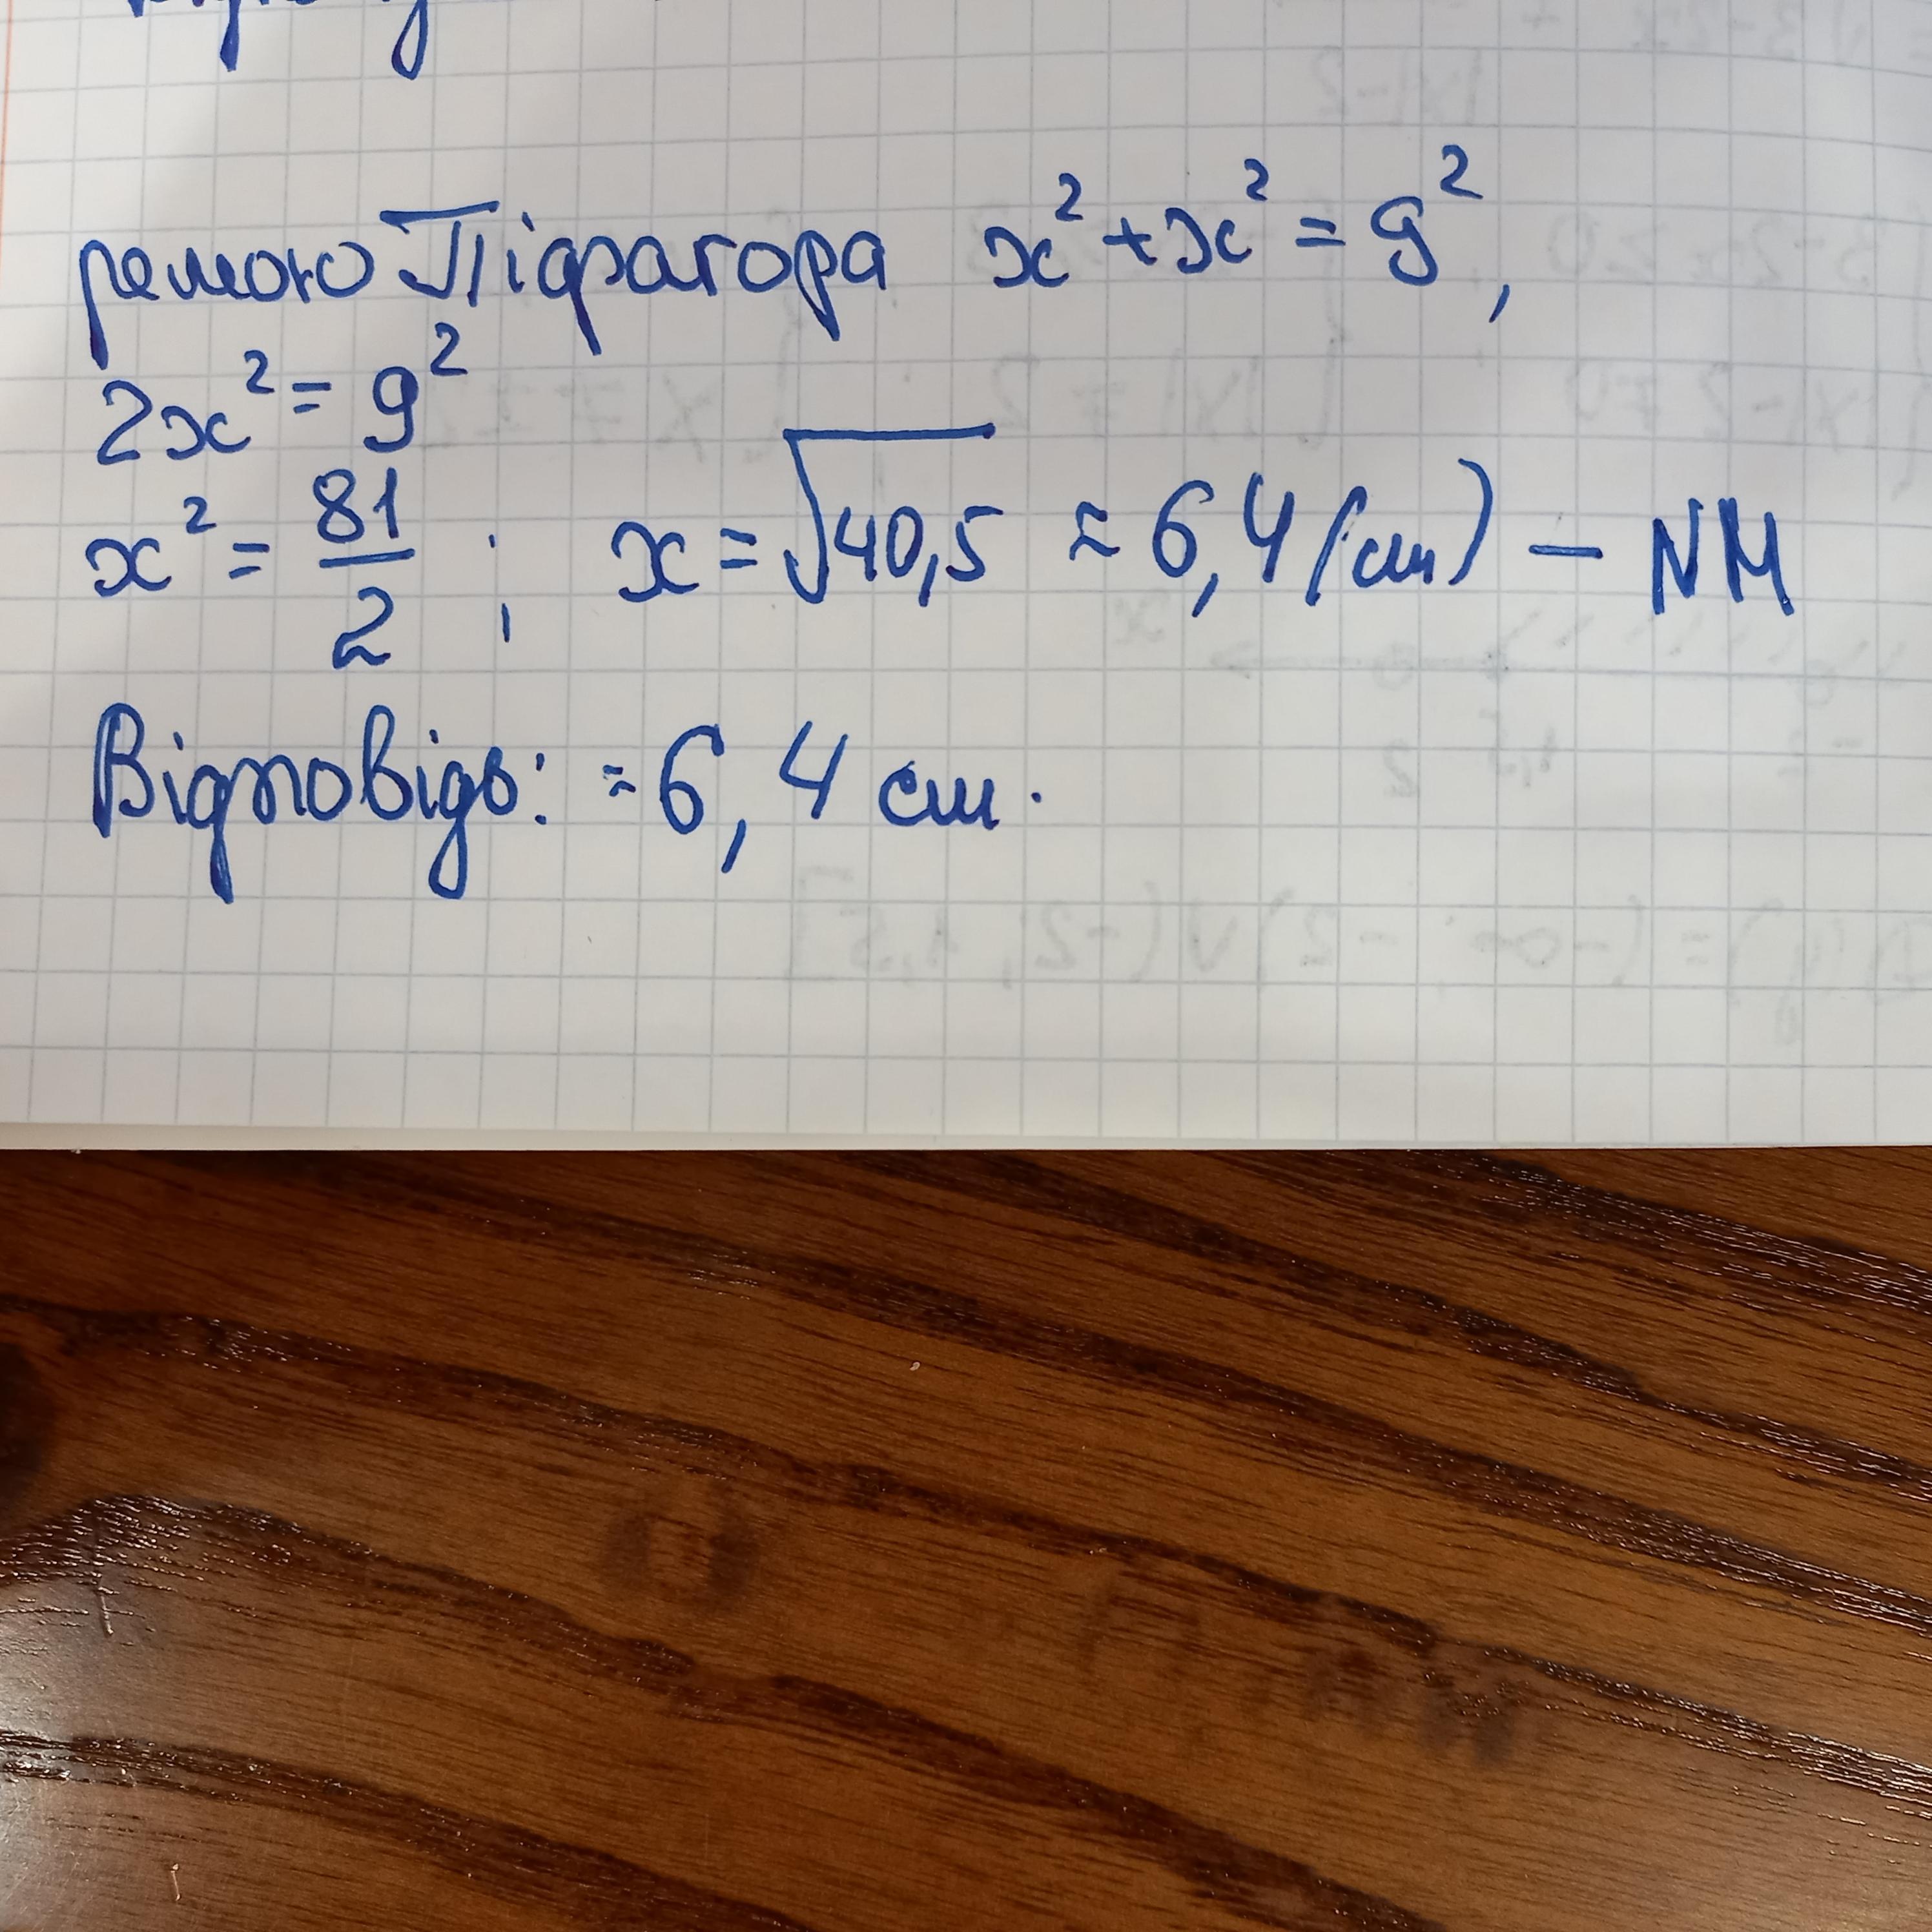 ремою Піфагора x² + x² = 9²,
2x² = 9²
x² = 81/2 ; x = √40,5 ≈ 6,4 (см) – NM
Відповідь: ≈ 6,4 см.